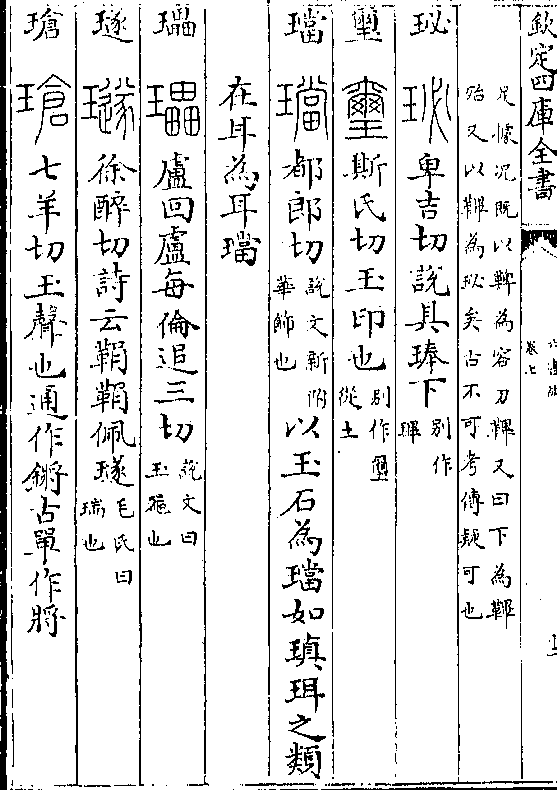 欽定四庫全書
卷七
足據况既以鞞為容刀鞞又曰下為鞸
殆又以鞸為珌矣古不可考傳疑可也
珌 卑吉切說具琫下別作㻫
璽 斯氏切玉印也別作壐從土
璫 都郎切說文新附華飾也以玉石為璫如瑱珥之類
在耳為耳璫
瓃 盧回盧每倫追三切說文曰玉器也
璲 徐醉切詩云鞙鞙佩璲毛氏曰瑞也
瑲 七羊切玉聲也通作鏘古單作將